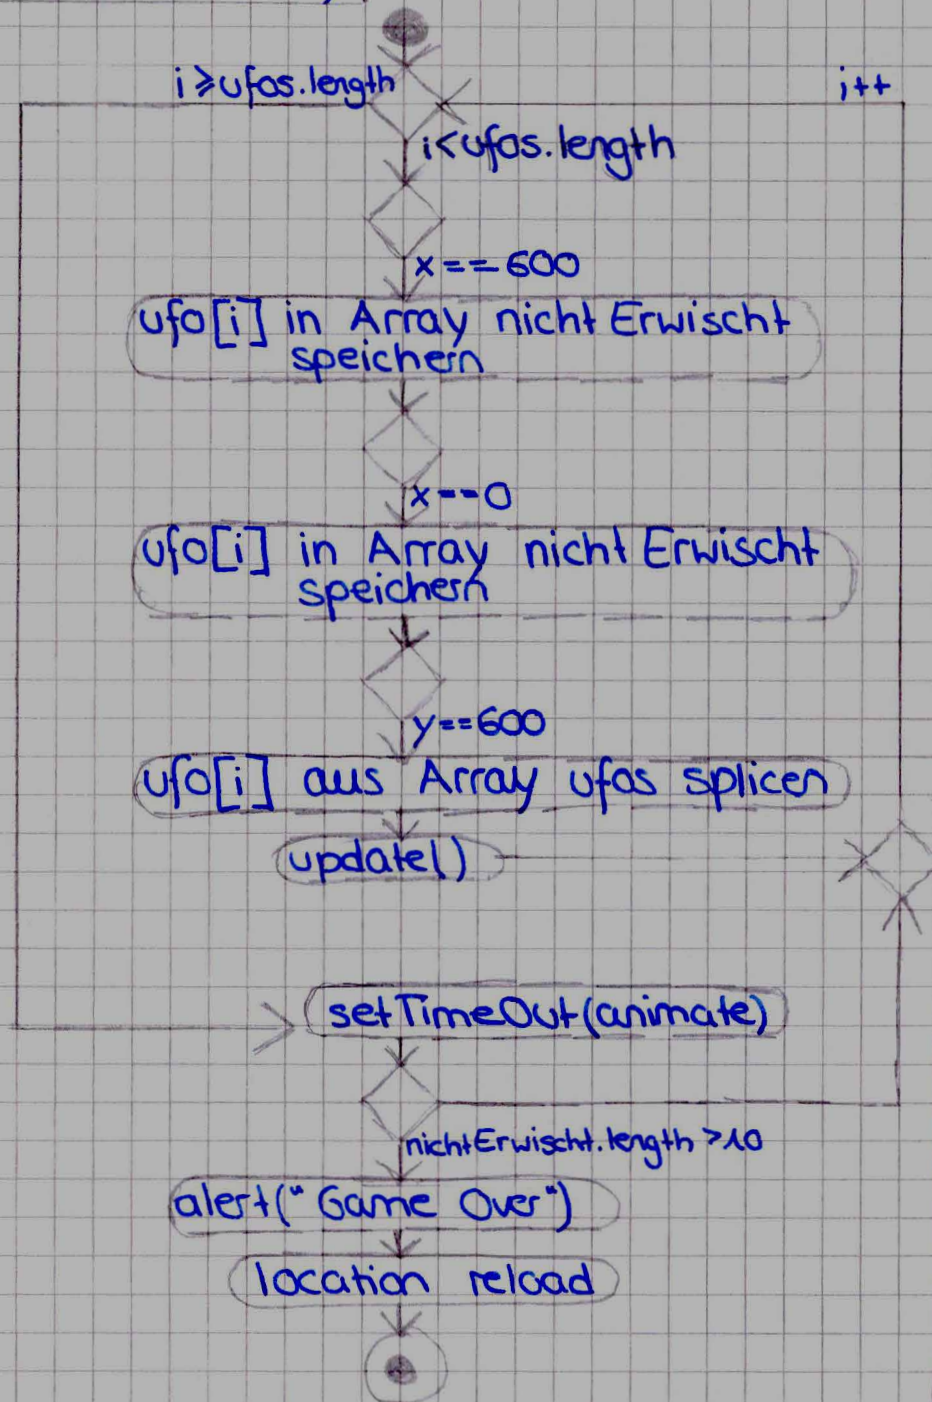 i≥ufos.length
i++
i<ufos.length
x==600
ufo[i] in Array nicht Erwischt
speichern
x==0
ufo[i] in Array nicht Erwischt
speichern
y==600
ufo[i] aus Array ufos splicen
update()
setTimeOut(animate)
nichtErwischt.length >10
alert("Game Over")
location reload